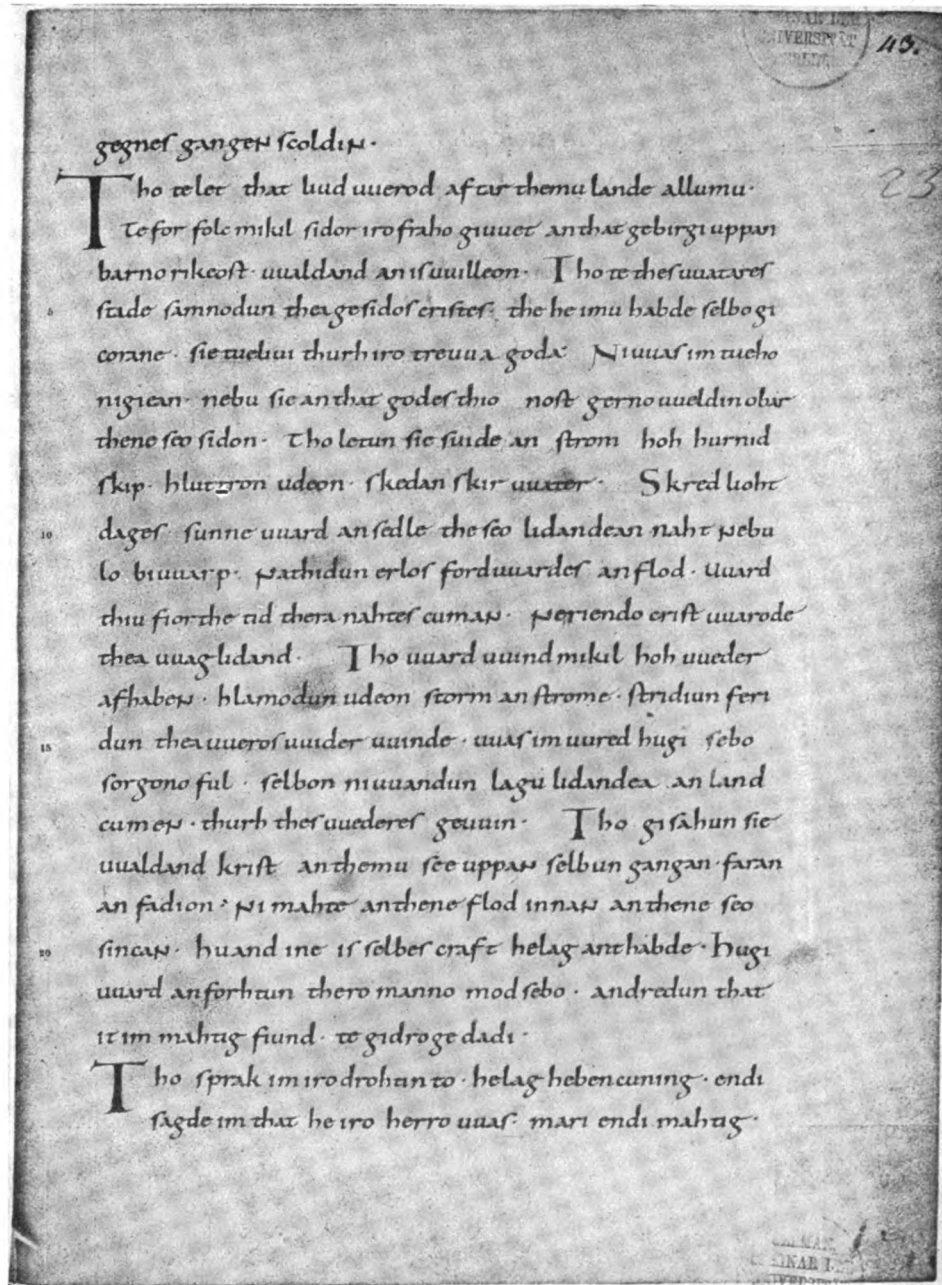 43.
gegnes gangen scoldin·
23
Tho telet that liud uuerod aftar themu lande allumu·
Te for folc mikil sidor iro fraho giuuet an that gebirgi uppan
barno rikeost· uualdand an is uuilleon· Tho te thes uuatares
5 stade samnodun thea gesidos cristes· the he imu habde selbo gi
corane· sie tuelibi thurh iro treuua goda· Ni uuas im tueho
nigiean· nebu sie an that godes thio nost gerno uueldin obar
thene seo sidon· Tho letun sie suide an strom hoh hurnid
skip· hluttron udeon· skedan skir uuater· Skred lioht
10 dages sunne uuard an sedle the seo lidandean naht nebu
lo biuuarp· nathidun erlos forduuardes an flod· Uuard
thiu fiorthe tid thera nahtes cuman· neriendo crist uuarode
thea uuaglidand· Tho uuard uuind mikil hoh uueder
afhaben· hlamodun udeon storm an strome· stridiun feri
15 dun thea uueros uuider uuinde· uuas im uured hugi sebo
sorgono ful· selbon ni uuandun lagu lidandea an land
cumen· thurh thes uuederes geuuin· Tho gisahun sie
uualdand krist an themu see uppan selbun gangan· faran
an fadion· Ni mahte an thene flod innan an thene seo
20 sincan· huand ine is selbes craft helag anthabde· hugi
uuard an forhtun thero manno mod sebo· andredun that
it im mahtig fiund· te gidroge dadi·
Tho sprak im iro drohtin to· helag heben cuning· endi
sagde im that he iro herro uuas· mari endi mahtig·